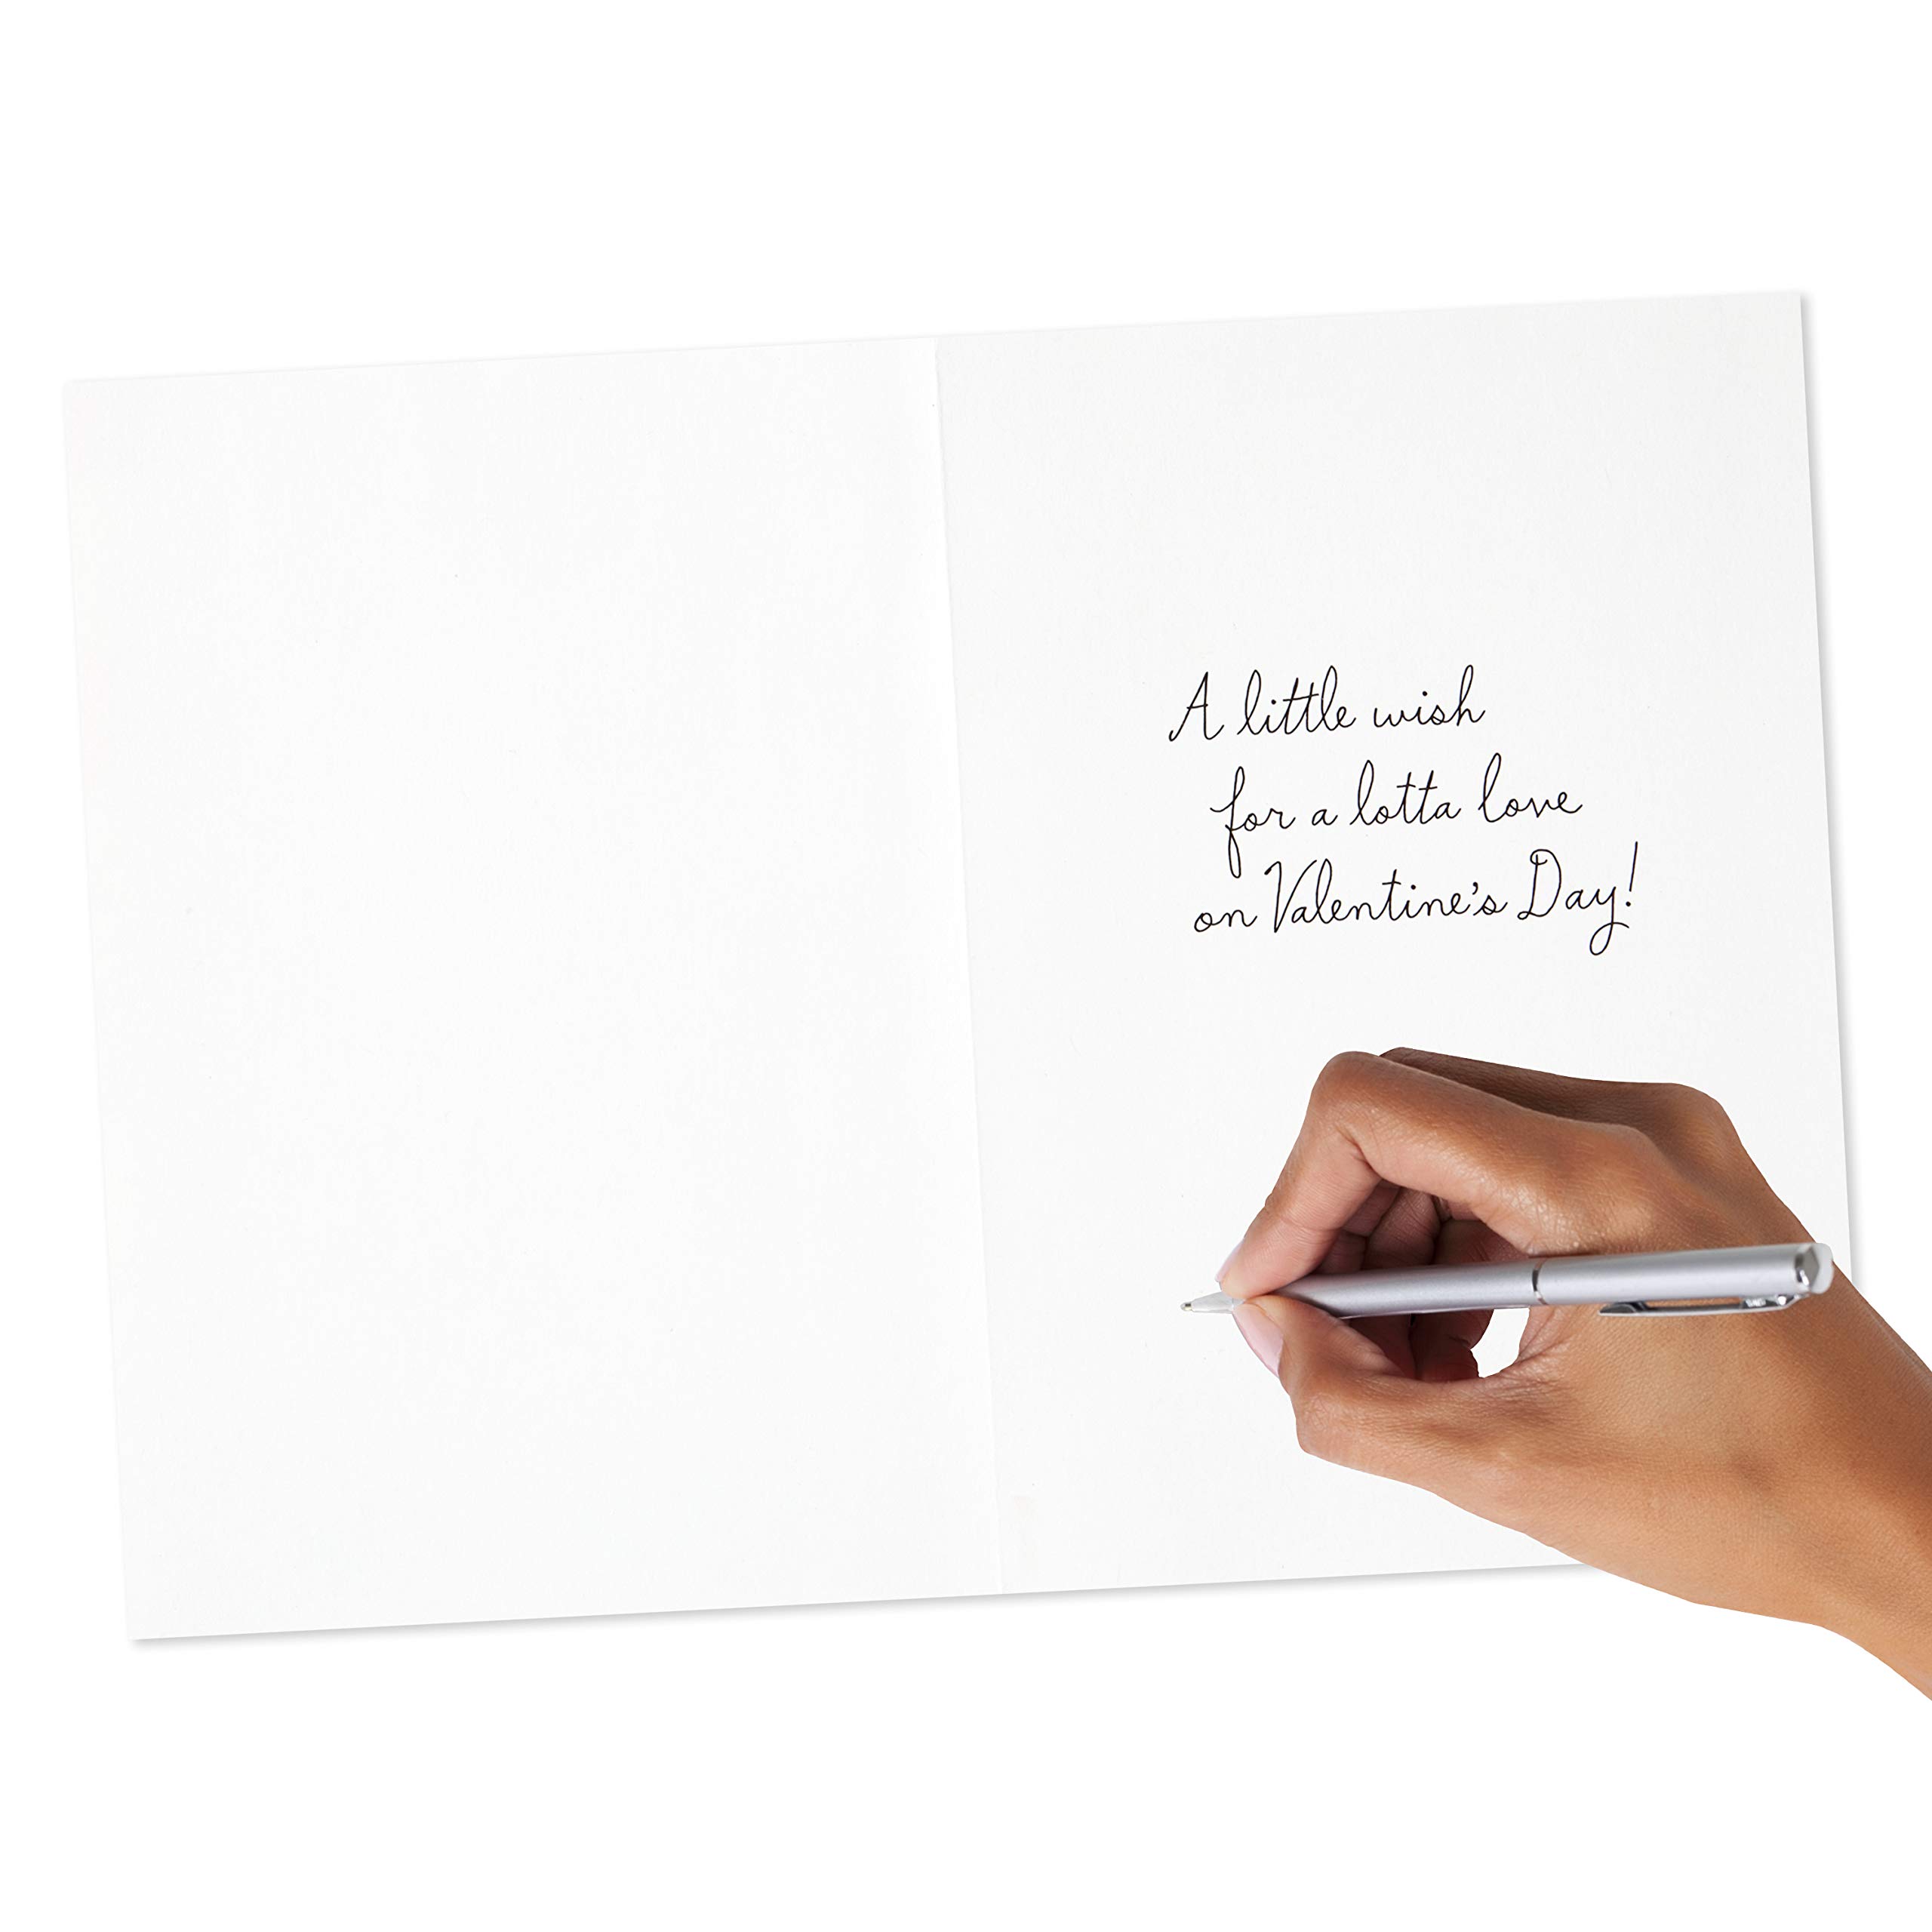 A little wish
for a lotta love
on Valentine's Day!